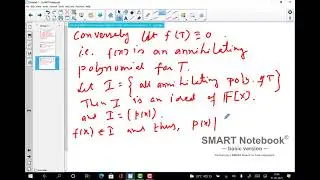 Conversely let f(T) ≡ 0
i.e. f(x) is an annihilating
polynomial for T.
Let I = { all annihilating poly. of T }
Then I is an ideal of F[x].
and I = (p(x)).
f(x) ∈ I and thus, p(x) |
SMART Notebook®
basic version